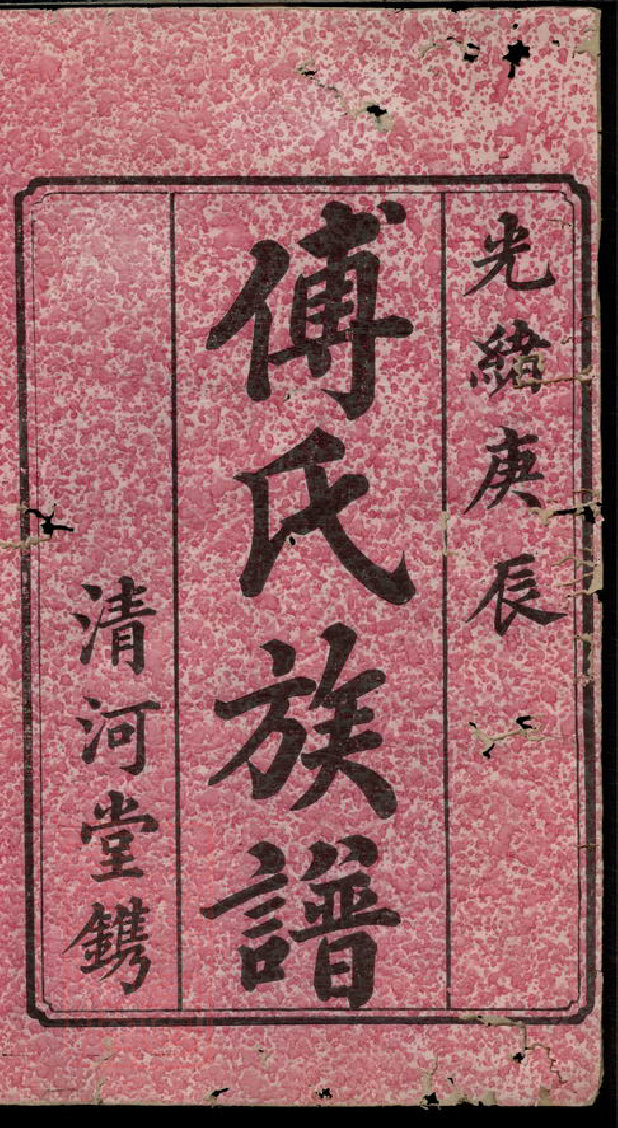 光緒庚辰
傅氏族譜
清河堂鐫